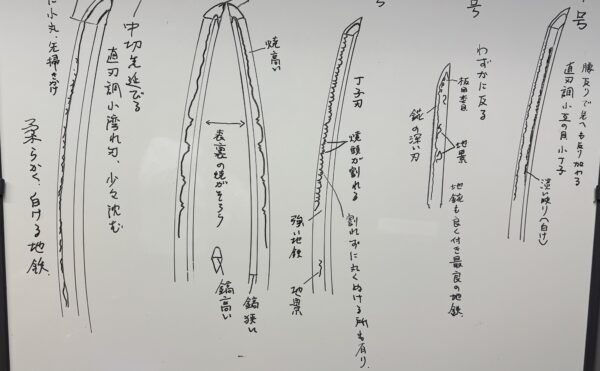 号
腰反りで先へも反り加わる
直刃調小互の目小丁子
淡い映り(白け)
号
わずかに反る
板目杢目
地景
錵の深い刃
地錵も良く付き最良の地鉄.
丁子刃
焼頭が割れる
割れずに丸くぬける所も有り.
強い地鉄
地景
焼高い
表裏の焼がそろう
鎬狭い
鎬高い
中切先延びる
直刃調小湾れ刃、少々沈む
に小丸.先掃きかけ
柔らかく、白ける地鉄.